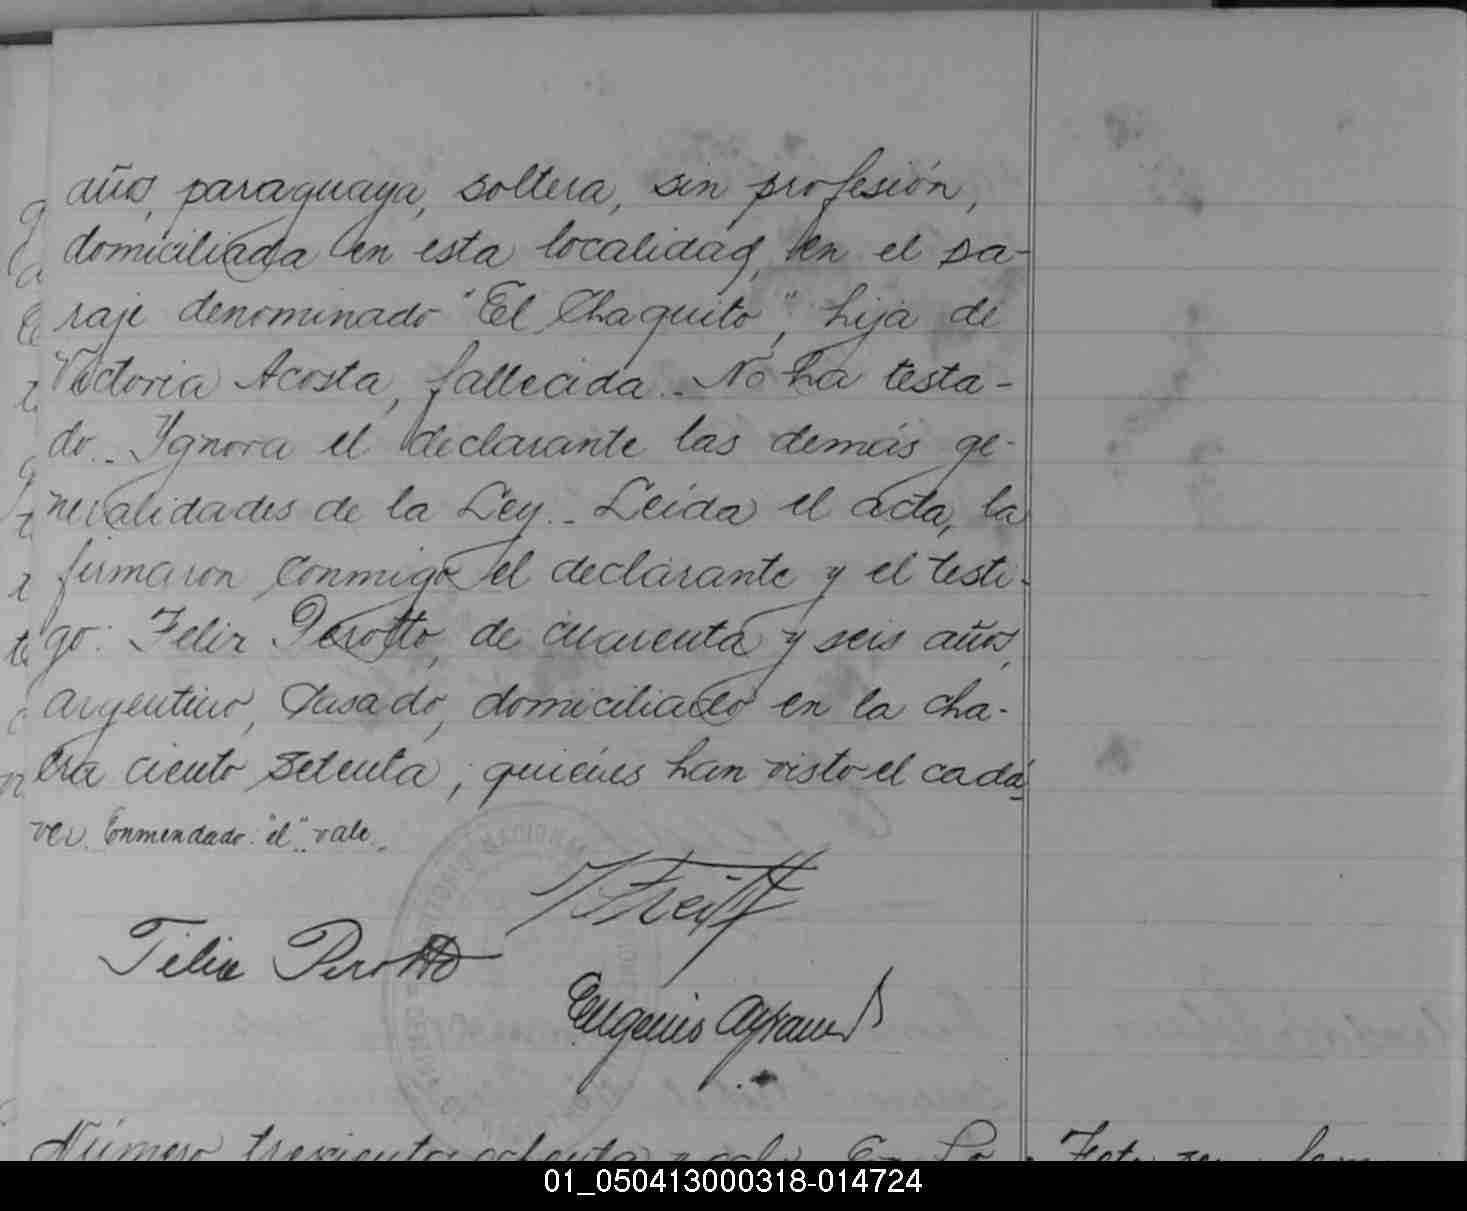 años, paraguaya, soltera, sin profesión,
domiciliada en esta localidad, en el pa-
raje denominado "El Chaquito", hija de
Victoria Acosta, fallecida.- No ha testa-
do.- Ignora el declarante las demás ge-
neralidades de la Ley.- Leída el acta, la
firmaron conmigo el declarante y el testi-
go: Felix Perotto, de cuarenta y seis años,
argentino, casado, domiciliado en la cha-
cra ciento setenta; quiénes han visto el cadá-
ver. Enmendado: "el" vale.-
Felix Perotto
Eugenio
Número trescientos ochenta y
01_050413000318-014724